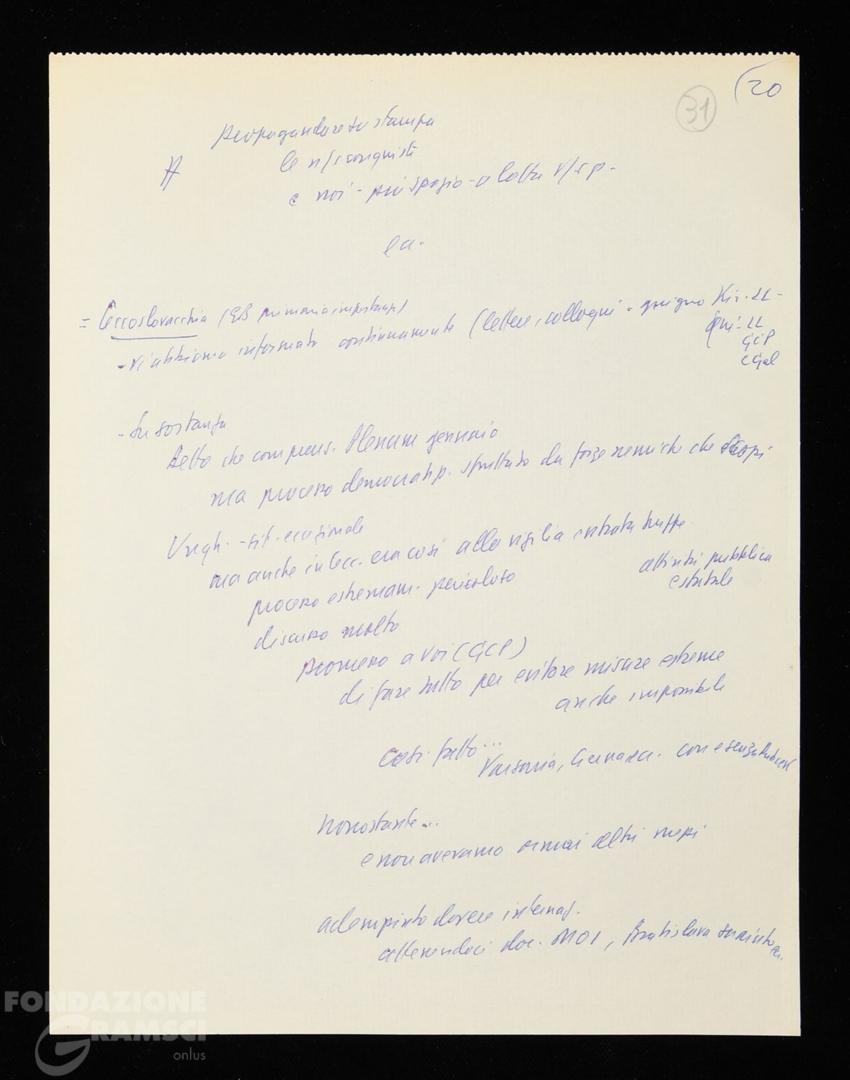 20
31
propagandare su stampa
A le n/s conquiste
e noi - più spazio - a lotta v/s p.
e a.
= Cecoslovacchia (QB primaria importanza)
- vi abbiamo informato continuamente (lettere, colloqui - giugno Kir. - LL -
LL
GCP
- In sostanza
detto che compreso. Plenum gennaio
ma processo democratizz. sfruttato da forze nemiche che
Ungh. - sit. eccezionale
ma anche in Cec. era così alla vigilia entrata truppe
processo estremam. pericoloso
attività pubblica
discusso molto
promesso a voi (GCP)
di fare tutto per evitare misure estreme
anche impossibile
così fatto...
Varsavia, Cierna ecc. con e senza
nonostante...
e non avevamo ormai altri mezzi
adempiuto dovere internaz.
attenendoci doc. Bratislava
FONDAZIONE
GRAMSCI
onlus